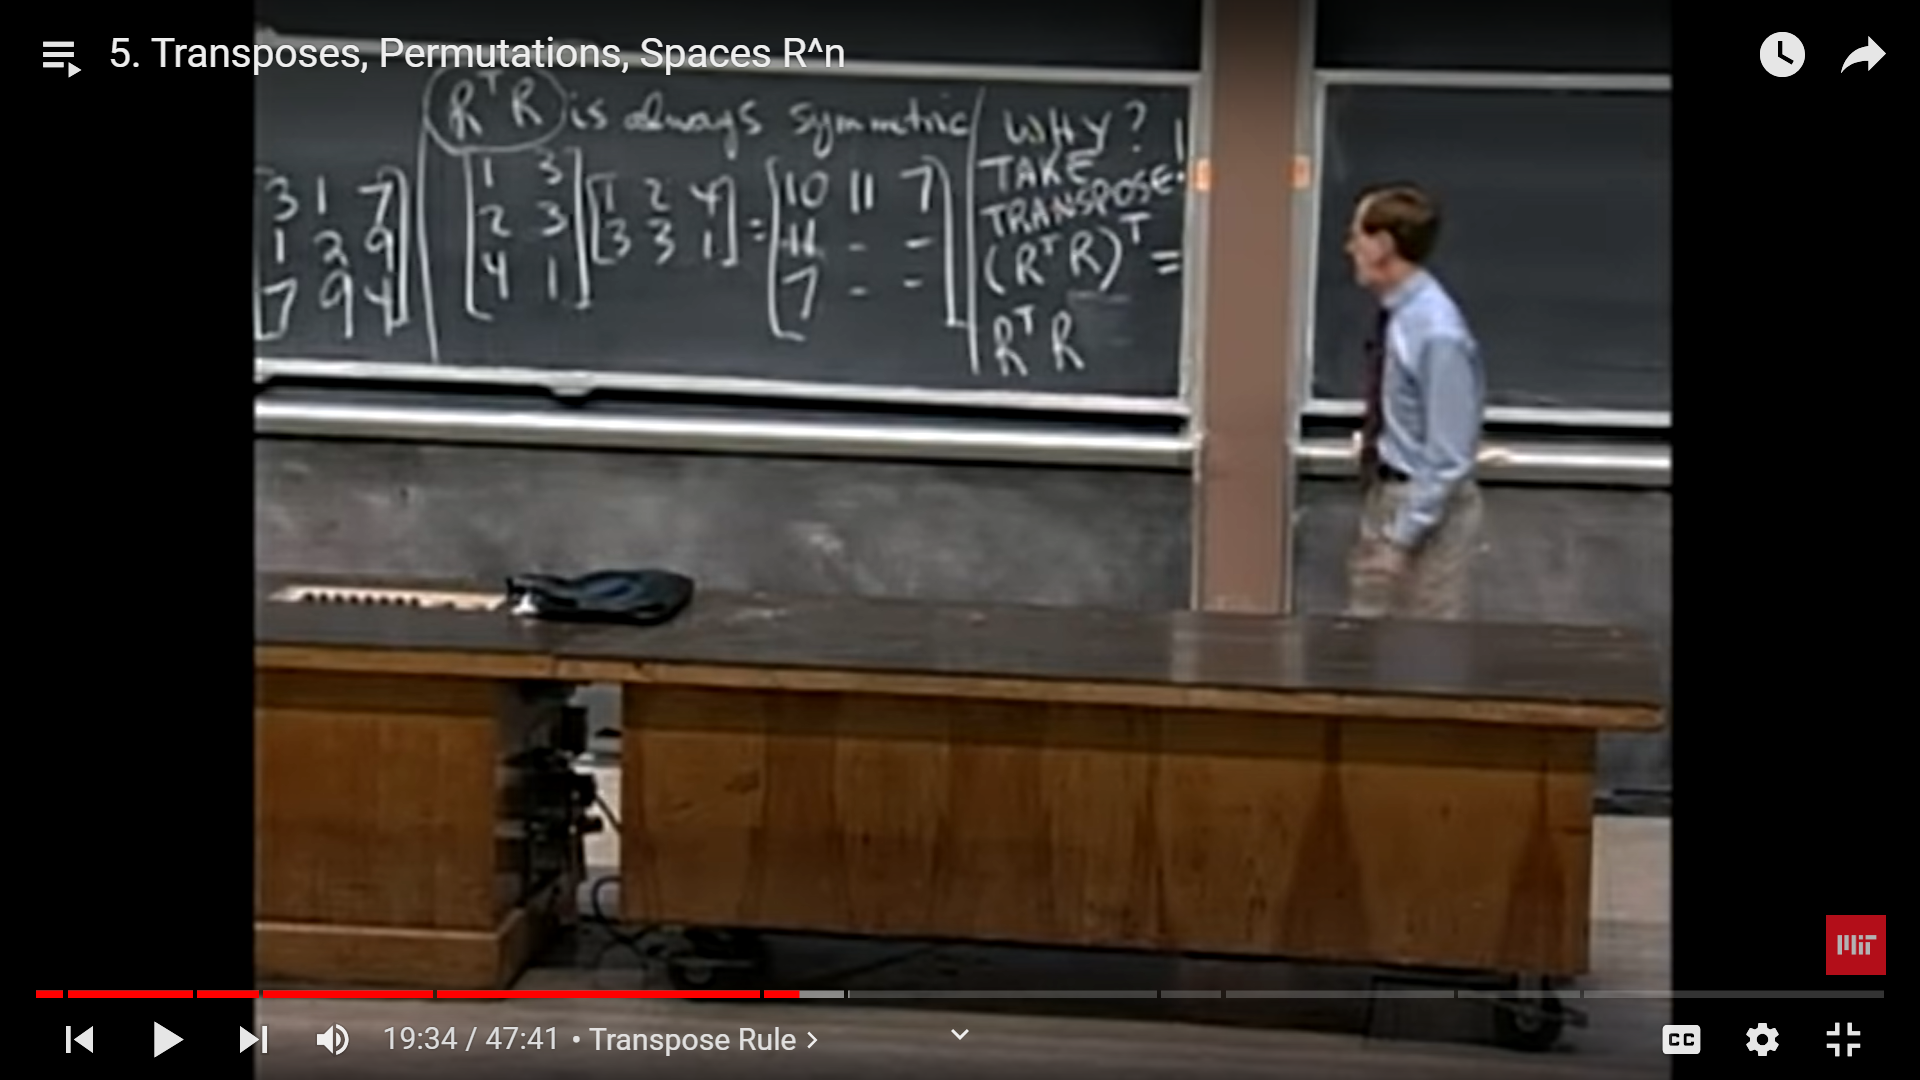 5. Transposes, Permutations, Spaces R^n
RᵀR is always symmetric
3 1 7
1 2 9
7 9 4
1 3
2 3
4 1
1 2 4
3 3 1
=
10 11 7
11 - -
7 - -
WHY?
TAKE
TRANSPOSE
(RᵀR)ᵀ =
RᵀR
MIT
19:34 / 47:41 • Transpose Rule >
CC